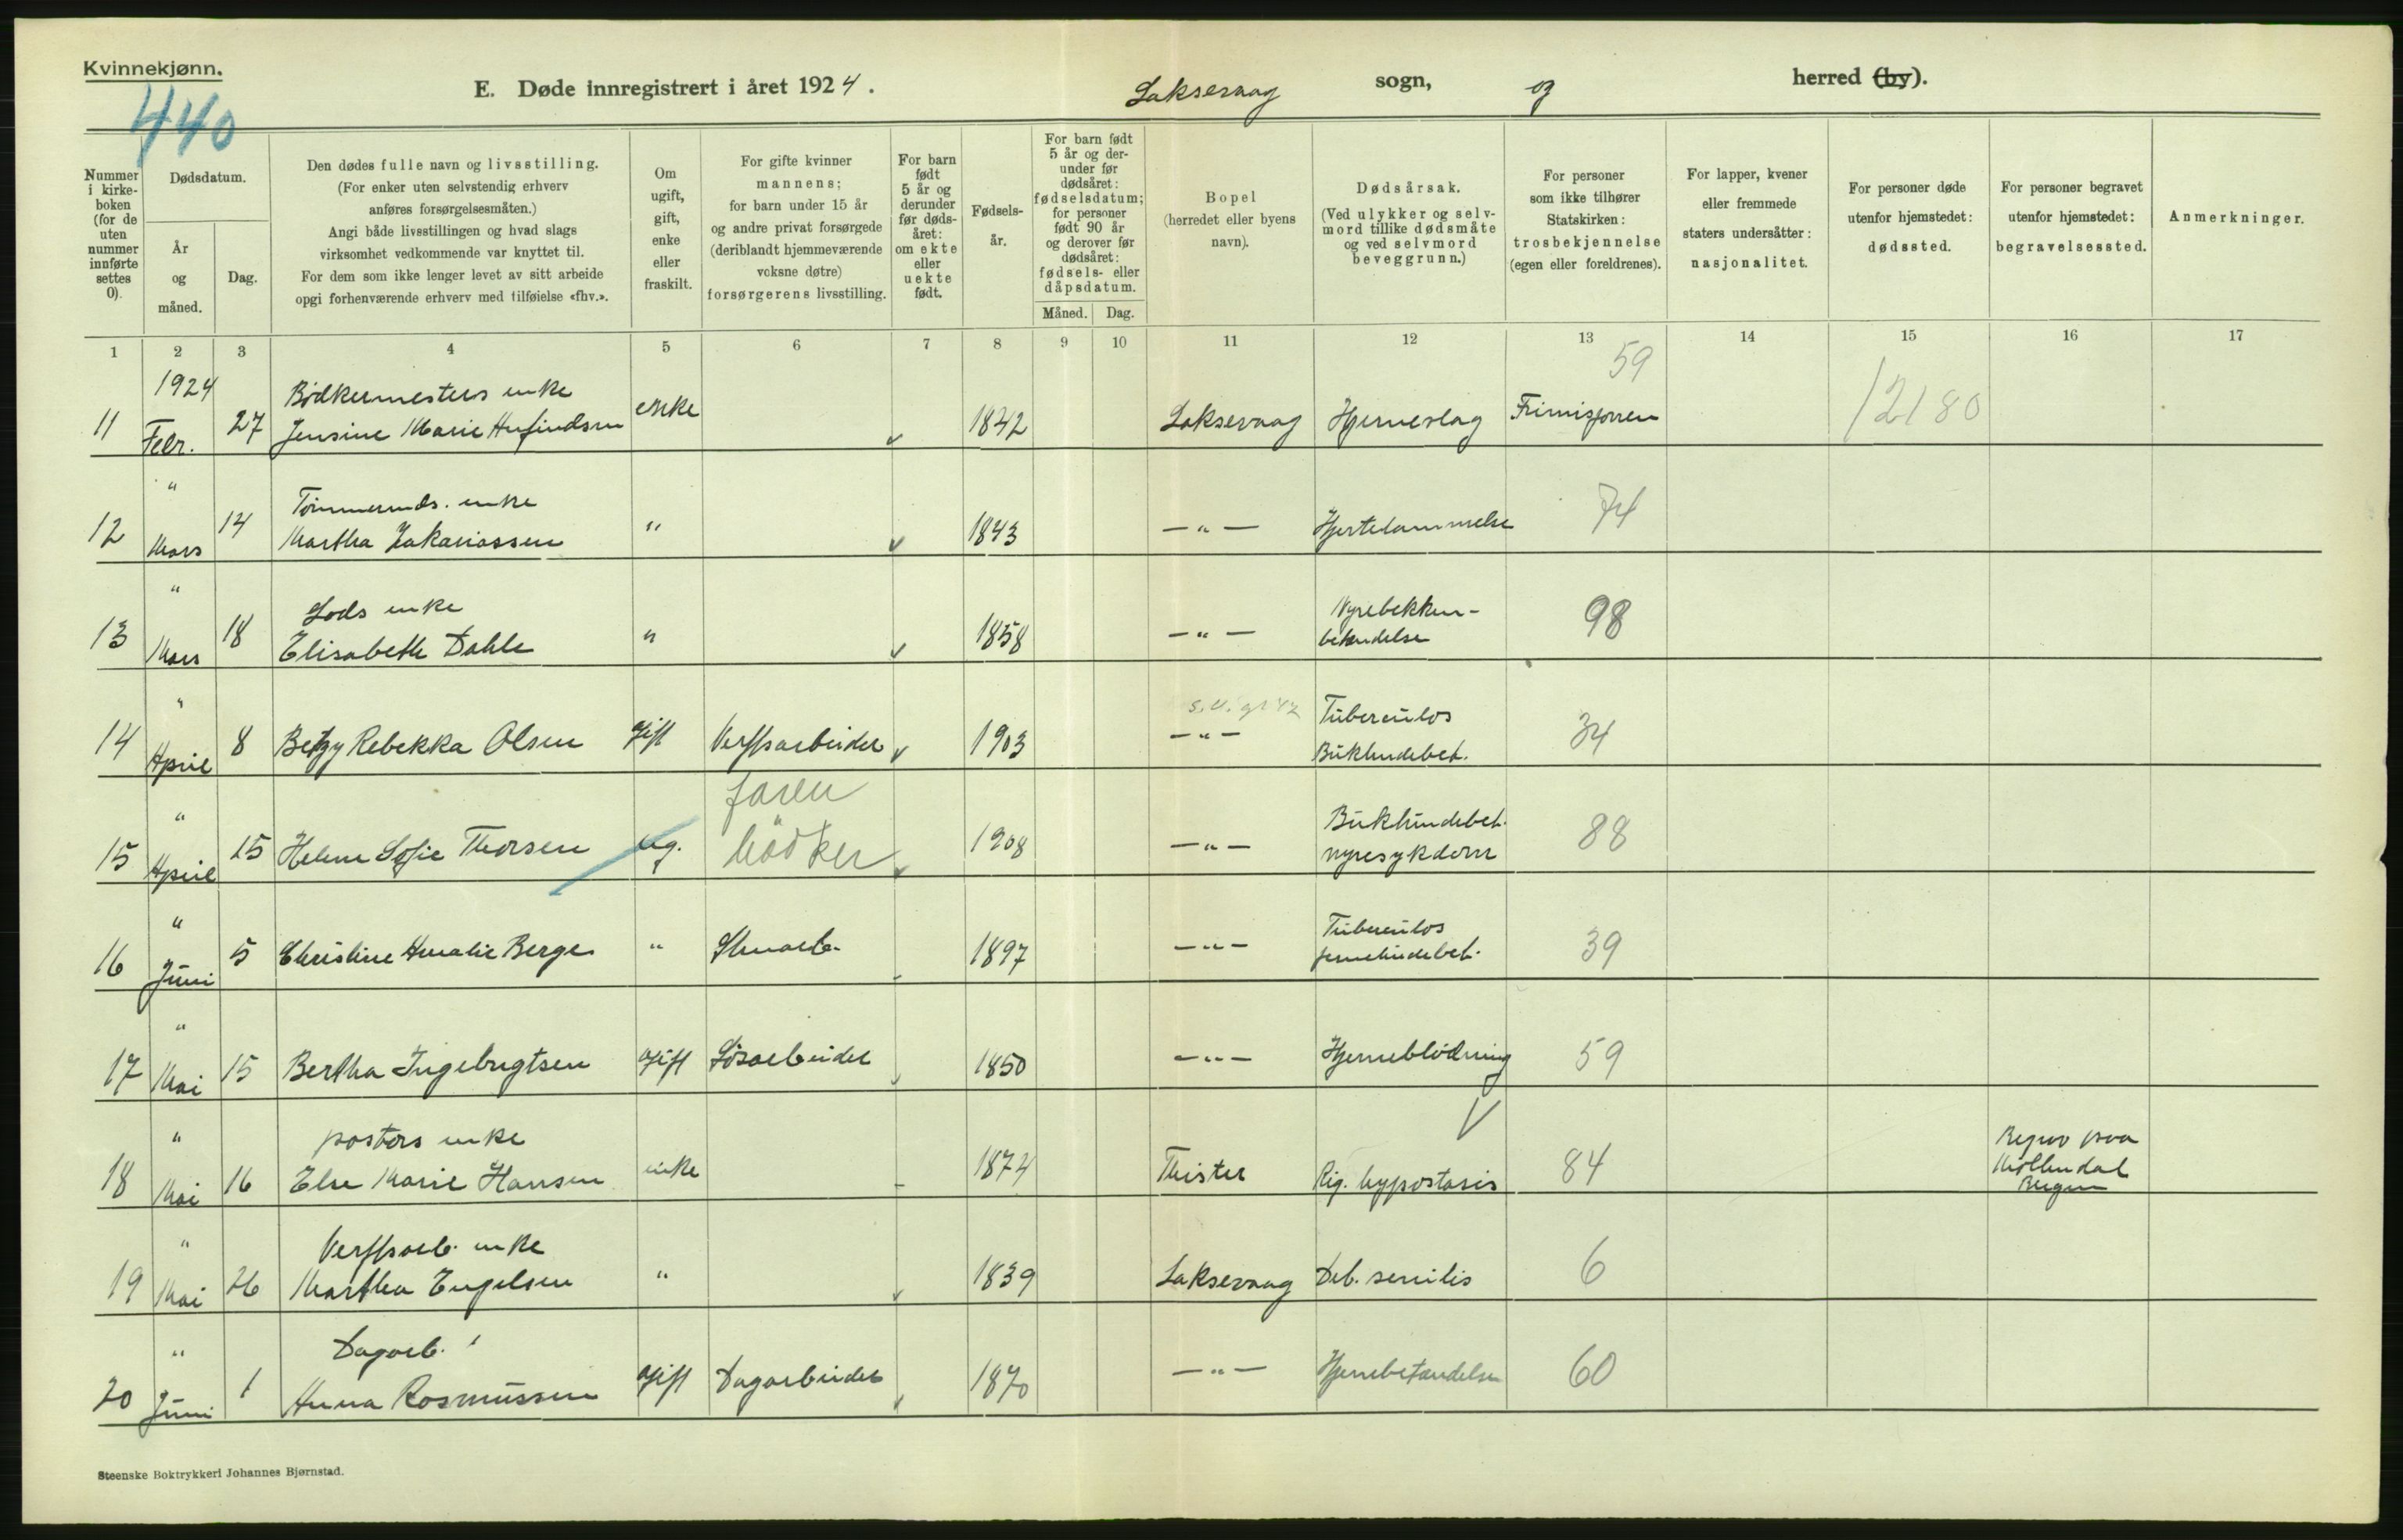 Kvinnekjønn.
440
E. Døde innregistrert i året 1924.
Laksevaag sogn, og herred (by).
Nummer i kirkeboken (for de uten nummer innførte settes 0).
Dødsdatum.
År og måned.
Dag.
Den dødes fulle navn og livsstilling.
(For enker uten selvstendig erhverv
anføres forsørgelsesmåten.)
Angi både livsstillingen og hvad slags
virksomhet vedkommende var knyttet til.
For dem som ikke lenger levet av sitt arbeide
opgi forhenværende erhverv med tilføielse «fhv.».
Om ugift, gift, enke eller fraskilt.
For gifte kvinner
mannens;
for barn under 15 år
og andre privat forsørgede
(deriblandt hjemmeværende
voksne døtre)
forsørgerens livsstilling.
For barn født 5 år og derunder før dødsåret: om ekte eller uekte født.
Fødselsår.
For barn født 5 år og derunder før dødsåret: fødselsdatum; for personer født 90 år og derover før dødsåret: fødsels- eller dåpsdatum.
Måned. Dag.
Bopel
(herredet eller byens navn).
Dødsårsak.
(Ved ulykker og selvmord tillike dødsmåte og ved selvmord beveggrunn.)
For personer
som ikke tilhører
Statskirken:
trosbekjennelse
(egen eller foreldrenes).
For lapper, kvener
eller fremmede
staters undersåtter:
nasjonalitet.
For personer døde
utenfor hjemstedet:
dødssted.
For personer begravet
utenfor hjemstedet:
begravelsessted.
Anmerkninger.
1 2 3 4 5 6 7 8 9 10 11 12 13 14 15 16 17
59
1924 Bødkermesters enke
11 Febr. 27 Jensine Marie enke 1842 Laksevaag Hjerneslag Frimisjonen 12180
" enke
12 Mars 14 Martha Zakariassen " 1843 —"— Hjertelammelse 74
" Lods enke Nyrebekken-
13 Mars 18 Elisabeth Dahle " 1858 —"— betendelse 98
" Tuberculos
14 April 8 Betzy Rebekka Olsen gift Verftsarbeider 1903 —"— Bukhindebet. 34
" faren Bukhindebet.
15 April 15 Helene Sofie Thorsen ug. bødker 1908 —"— nyresykdom 88
" Tuberculos
16 Juni 5 Christine Amalie Berge " 1897 —"— hindebet. 39
"
17 Mai 15 Bertha Ingebrigtsen gift Løsarbeider 1850 —"— Hjerneblødning 59
" pastors enke Begrav paa
18 Mai 16 Else Marie Hansen enke 1874 Thister Rig. hypostasis 84 Møllendal
Bergen
" Verftsarb. enke
19 Mai 26 Martha Engelsen " 1839 Laksevaag Deb. senilis 6
" Dagarb.
20 Juni 1 Anna Rasmussen gift Dagarbeider 1870 —"— Hjernebetændelse 60
Steenske Boktrykkeri Johannes Bjørnstad.